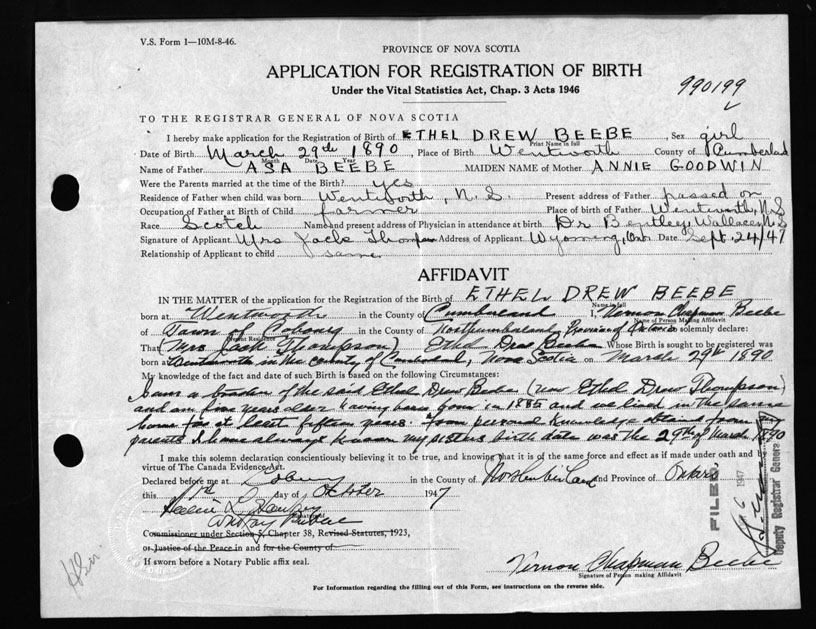 V.S. Form 1—10M-8-46.
PROVINCE OF NOVA SCOTIA
APPLICATION FOR REGISTRATION OF BIRTH
Under the Vital Statistics Act, Chap. 3 Acts 1946
990199
TO THE REGISTRAR GENERAL OF NOVA SCOTIA
I hereby make application for the Registration of Birth of ETHEL DREW BEEBE, Sex girl
Print Name in full
Date of Birth March 29th 1890, Place of Birth Wentworth County of Cumberland
Month Date Year
Name of Father ASA BEEBE MAIDEN NAME of Mother ANNIE GOODWIN
Were the Parents married at the time of the Birth? yes
Residence of Father when child was born Wentworth, N.S. Present address of Father passed on
Occupation of Father at Birth of Child farmer Place of birth of Father Wentworth, N.S
Race Scotch Name and present address of Physician in attendance at birth Dr Bentley, Wallace, N.S
Signature of Applicant Mrs Jack Thompson Address of Applicant Wyoming, Ont Date Sept. 24/47
Relationship of Applicant to child same
AFFIDAVIT
IN THE MATTER of the application for the Registration of the Birth of ETHEL DREW BEEBE
Name in full
born at Wentworth in the County of Cumberland I, Vernon Chapman Beebe
Name of Person Making Affidavit
of Town of Cobourg in the County of Northumberland, Province of Ontario solemnly declare:
Present Residence
That (Mrs Jack Thompson) Ethel Drew Beebe Whose Birth is sought to be registered was
born at Wentworth in the County of Cumberland, Nova Scotia on March 29th 1890
My knowledge of the fact and date of such Birth is based on the following Circumstances:
I am a brother of the said Ethel Drew Beebe (now Ethel Drew Thompson)
and am five years older having been born in 1885 and we lived in the same
home for at least fifteen years. From personal knowledge and from my
parents I have always known my sisters birth date was the 29th of March 1890
I make this solemn declaration conscientiously believing it to be true, and knowing that it is of the same force and effect as if made under oath and by
virtue of The Canada Evidence Act.
Declared before me at Cobourg in the County of Northumberland and Province of Ontario
this 1st day of October 1947
Notary Public
Commissioner under Section 5, Chapter 38, Revised Statutes, 1923,
or Justice of the Peace in and for the County of
If sworn before a Notary Public affix seal.
Vernon Chapman Beebe
Signature of Person making Affidavit
For Information regarding the filling out of this Form, see instructions on the reverse side.
FILED
1947
Deputy Registrar General